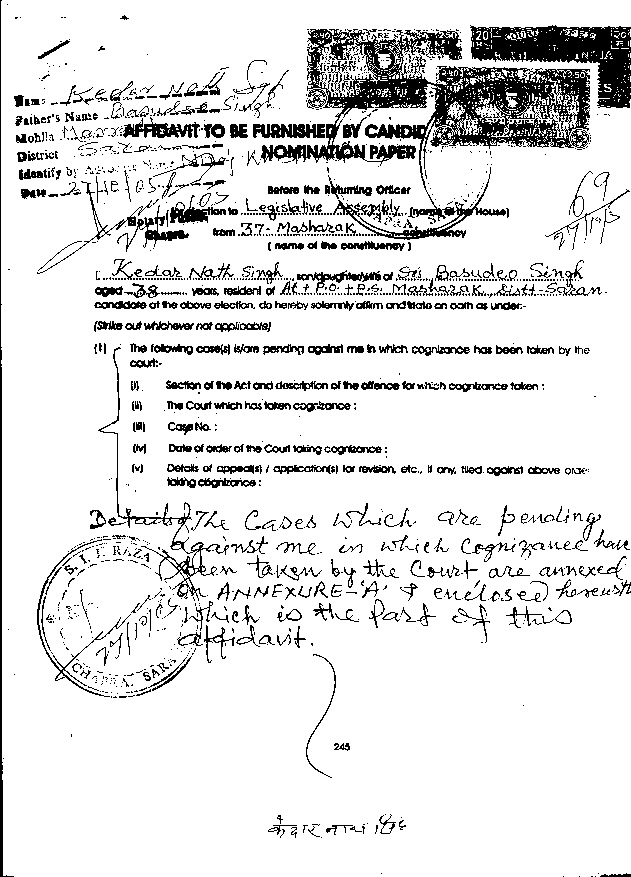 Name Kedar Nath Singh
Father's Name Basudeo Singh
Mohlla
District Saran
Identify by
Date 27/10/05
AFFIDAVIT TO BE FURNISHED BY CANDID
NOMINATION PAPER
Before the Returning Officer
69
27/10/5
to Legislative Assembly (name of the House)
from 37- Masharak constituency
( name of the constituency )
I Kedar Nath Singh son/daughter/wife of Sri Basudeo Singh
aged 38 years, resident of At + P.O. + P.S. Masharak, Distt-Saran.
candidate at the above election, do hereby solemnly affirm and state on oath as under:-
(Strike out whichever not applicable)
(1) The following case(s) is/are pending against me in which cognizance has been taken by the
court:-
(i) Section of the Act and description of the offence for which cognizance taken :
(ii) The Court which has taken cognizance :
(iii) Case No. :
(iv) Date of order of the Court taking cognizance :
(v) Details of appeal(s) / application(s) for revision, etc., if any, filed against above order
taking cognizance :
Details of The Cases which are pending
against me in which Cognizance have
been taken by the Court are annexed
on ANNEXURE-'A' & enclosed herewith
which is the Part of this
affidavit.
RAZA
27/10/05
CHAPRA, SARA
245
केदार नाथ सिंह